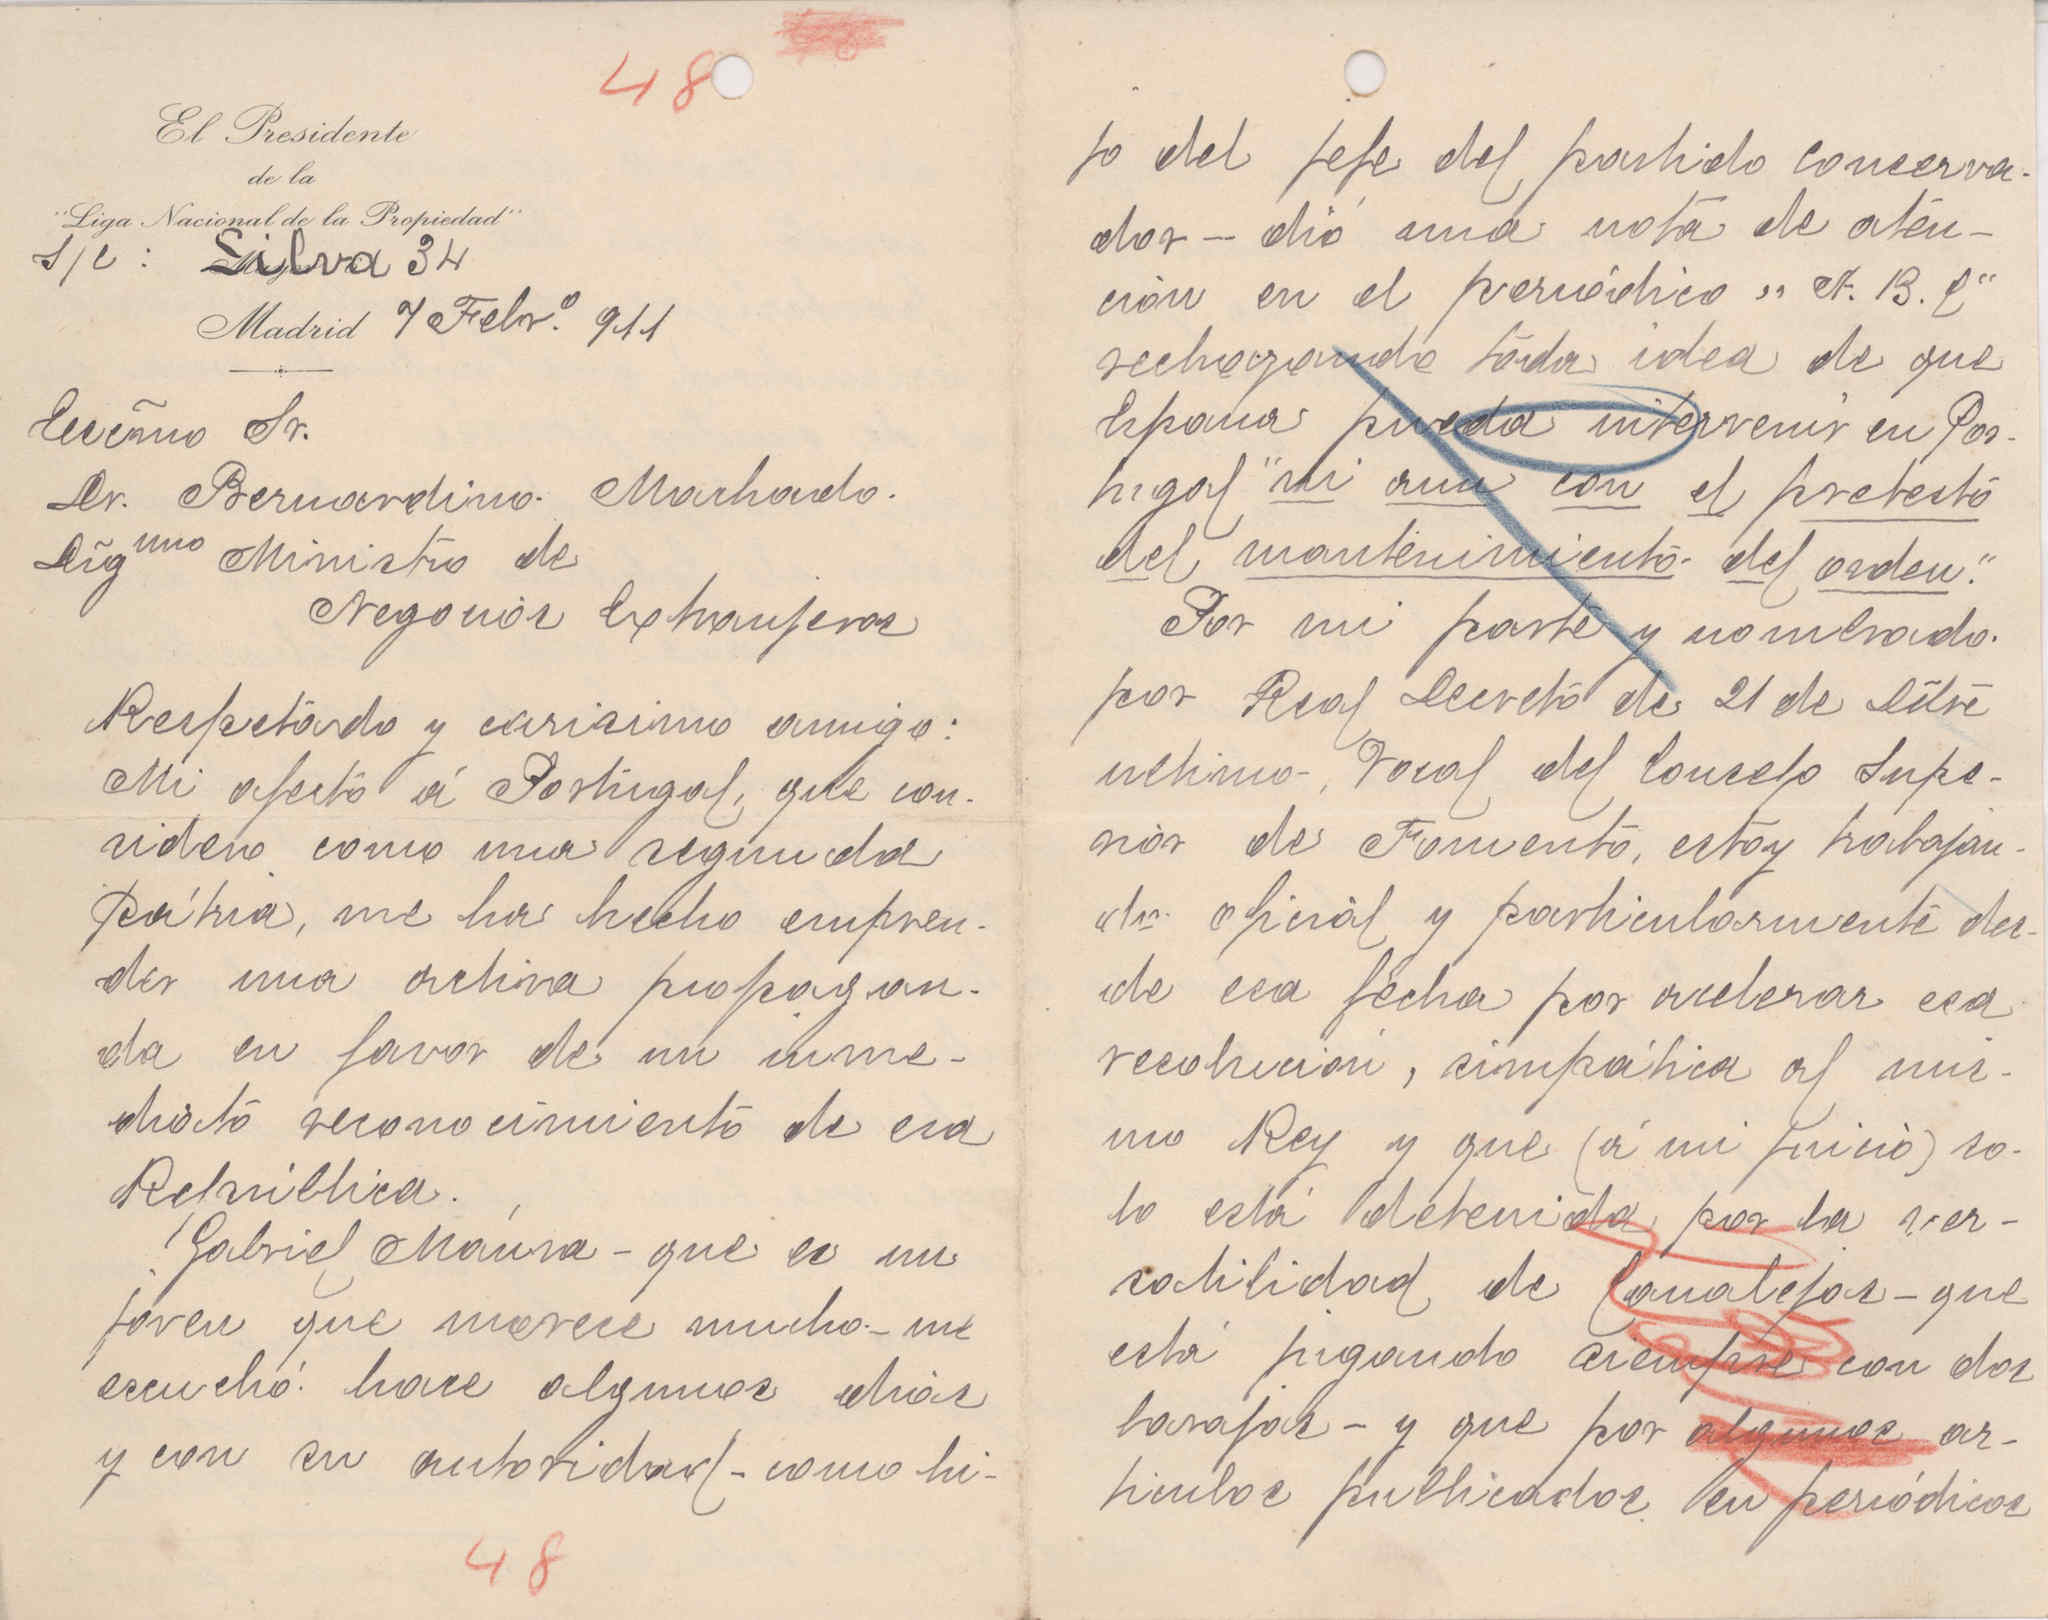 48
El Presidente
de la
"Liga Nacional de la Propiedad"
S/c: Silva 34
Madrid 7 Febr.º 911
Excemo Sr.
Dr. Bernardino Machado.
Digmo Ministro de
Negocios Extranjeros
Respetado y carisimo amigo:
Mi afecto á Portugal, que con-
sidero como una segunda
pátria, me ha hecho empren-
der una activa propagan-
da en favor de un inme-
diato reconocimiento de esa
República.
Gabriel Maura - que es un
joven que merece mucho - me
escuchó hace algunos dias
y con su autoridad - como hi-
48
jo del jefe del partido conserva-
dor - dió una nota de aten-
ción en el periódico "A. B. C"
rechazando toda idea de que
España pueda intervenir en Por-
tugal "ni aun con el pretesto
del mantenimiento del orden".
Por mi parte y nombrado
por Real Decreto de 21 de Dbre
ultimo, Vocal del Consejo Supe-
rior de Fomento, estoy trabajan-
do oficial y particularmente des-
de esa fecha por acelerar esa
resolucion, simpática al mis-
mo Rey y que (á mi juicio) so-
lo está detenida por la ver-
satilidad de Canalejas - que
está jugando siempre con dos
barajas - y que por algunos ar-
ticulos publicados en periódicos